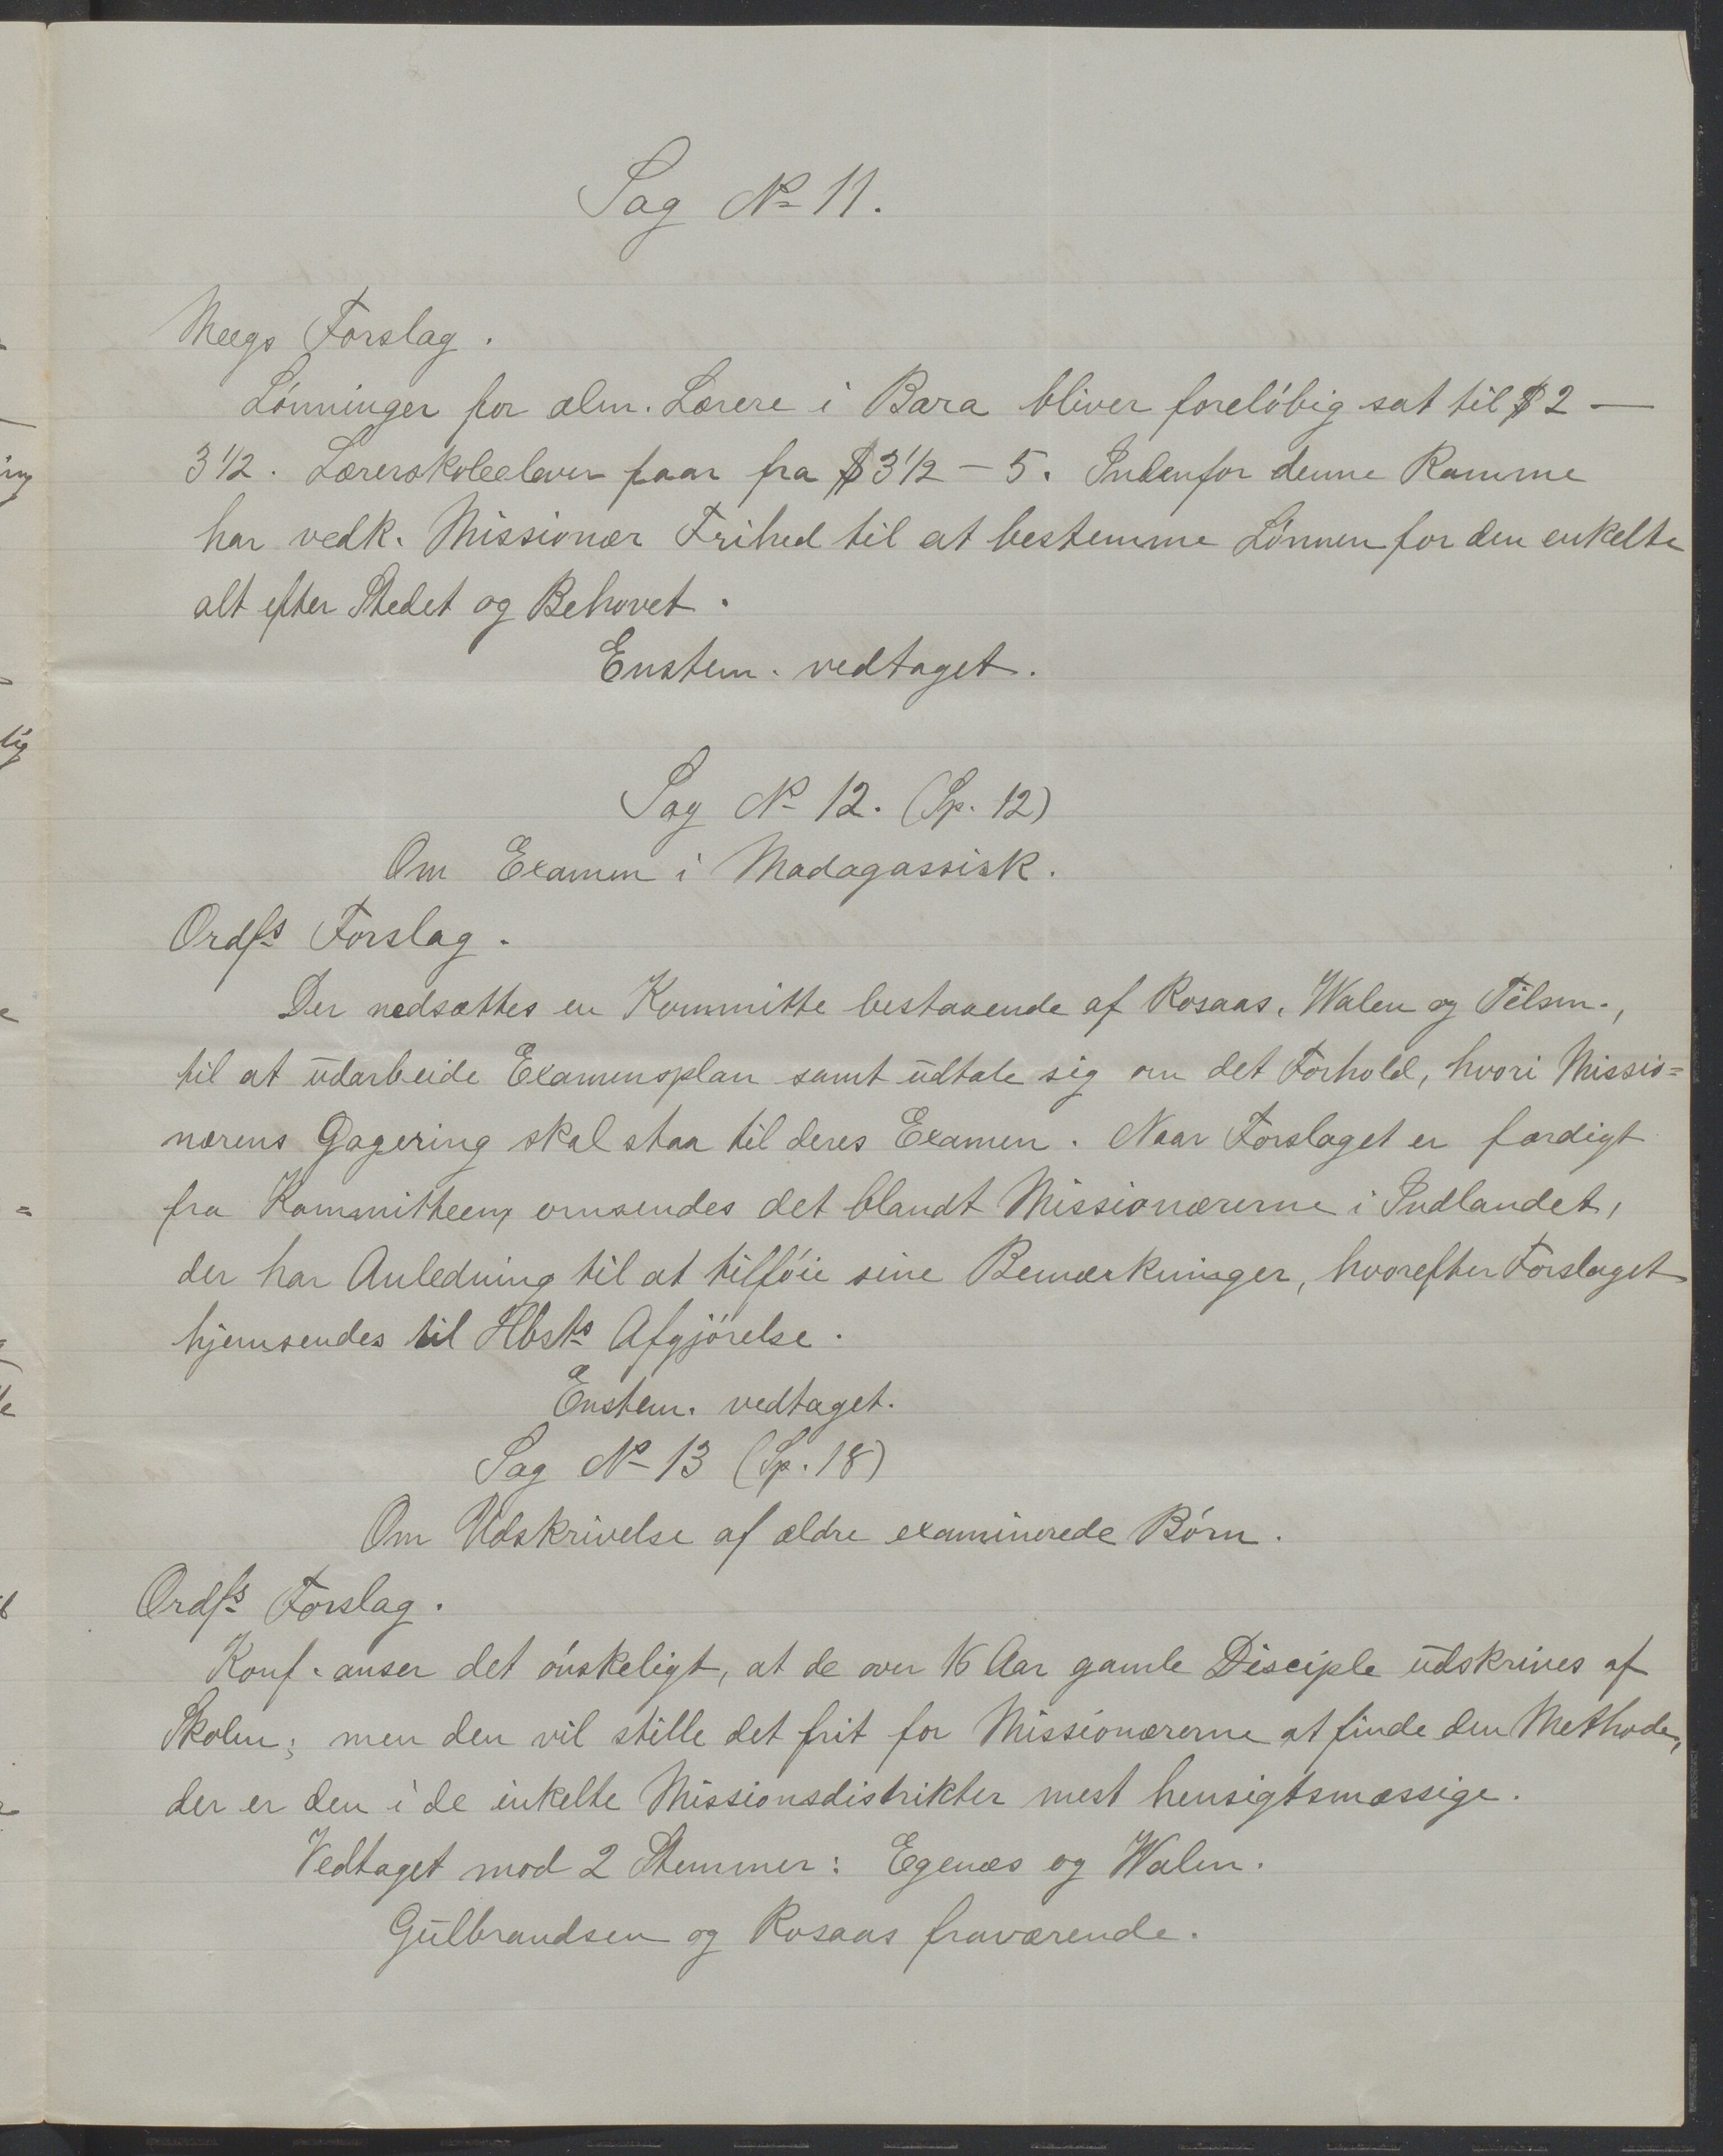 Sag No 11.
Meegs Forslag.
Lønninger for alm. Lærere i Bara bliver foreløbig sat til $ 2 —
3 1/2. Lærerskoleelever faar fra $ 3 1/2 — 5. Indenfor denne Ramme
har vedk. Missionær Frihed til at bestemme Lønnen for den enkelte
alt efter Stedet og Behovet.
Enstem. vedtaget.
Sag No 12. (Sp. 12)
Om Examen i Madagassisk.
Ordfs Forslag.
Der nedsættes en Kommitte bestaaende af Rosaas, Walen og Tilsm.,
til at udarbeide Examensplan samt udtale sig om det Forhold, hvori Missio=
nærens Gagering skal staa til deres Examen. Naar Forslaget er færdigt
fra Kommitteen, omsendes det blandt Missionærerne i Indlandet,
der har Anledning til at tilføie sine Bemærkninger, hvorefter Forslaget
hjemsendes til Hbsts Afgjørelse.
Enstem. vedtaget.
Sag No 13 (Sp. 18)
Om Udskrivelse af ældre examinerede Børn.
Ordfs Forslag.
Konf. anser det ønskeligt, at de over 16 Aar gamle Disciple udskrives af
Skolen; men den vil stille det frit for Missionærerne at finde den Methode,
der er den i de enkelte Missionsdistrikter mest hensigtsmæssige.
Vedtaget mod 2 Stemmer: Egenæs og Walen.
Gulbrandsen og Rosaas fraværende.